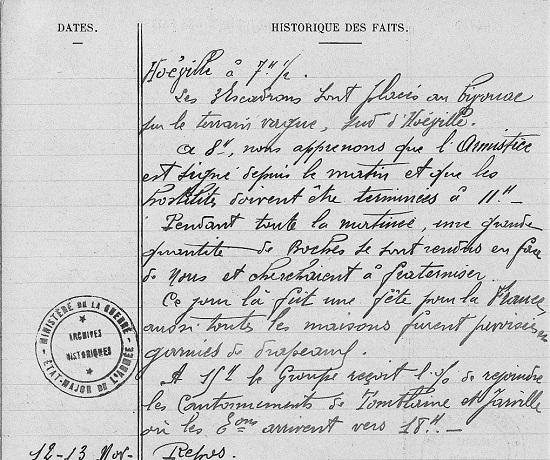 DATES.
HISTORIQUE DES FAITS.
Hoéville à 7H 1/2
Les Escadrons sont placés au bivouac
sur le terrain vague, sud d'Hoéville.
A 8H, nous apprenons que l'Armistice
est signé depuis le matin et que les
hostilités doivent être terminées à 11H.-
Pendant toute la matinée, une grande
quantité de Boches se sont rendus en face
de nous et cherchèrent à fraterniser.
Ce jour là fut une fête pour la France,
aussi toutes les maisons furent
garnies de drapeaux.
A 15H le Groupe reçoit l'o/ de rejoindre
les Cantonnements de Tomblaine et Jarville
où les Eons arrivent vers 18H.-
12-13 Nov.
Repos.
MINISTÈRE DE LA GUERRE
ARCHIVES
HISTORIQUES
ÉTAT-MAJOR DE L'ARMÉE